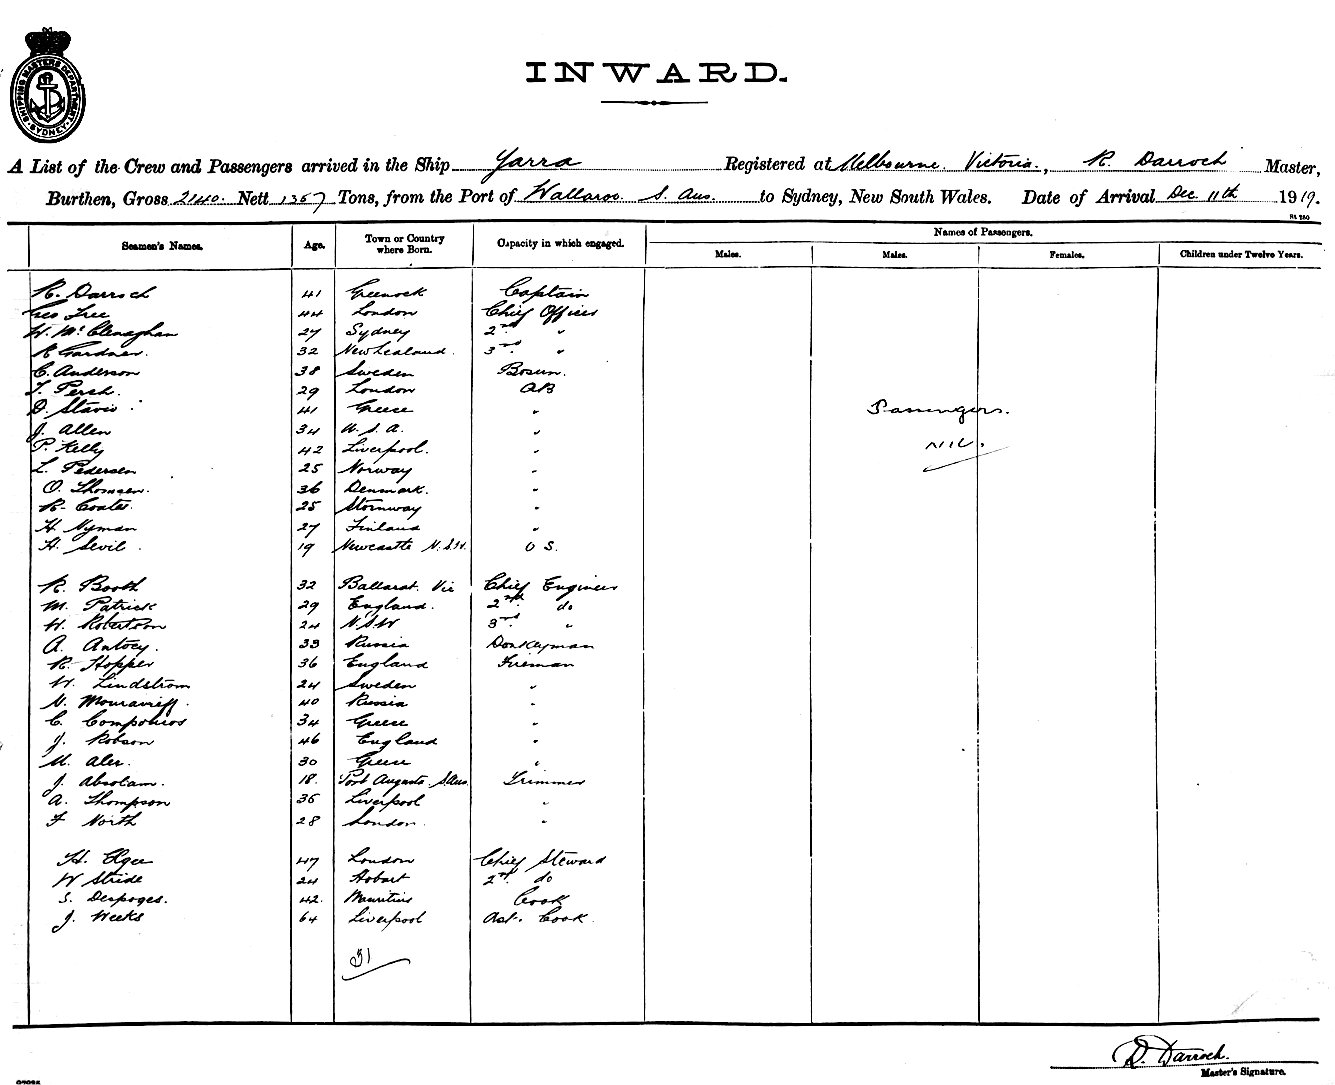 SHIPPING MASTERS DEPARTMENT
SYDNEY
INWARD.
A List of the Crew and Passengers arrived in the Ship Yarra Registered at Melbourne. Victoria., R. Darroch Master,
Burthen, Gross 2140. Nett 1357 Tons, from the Port of Wallaroo. S. Aus. to Sydney, New South Wales. Date of Arrival Dec 11th 1919.
Seamen's Names. Age. Town or Country where Born. Capacity in which engaged. Names of Passengers.
Males. Males. Females. Children under Twelve Years.
R. Darroch 41 Greenock Captain
Geo Free 44 London Chief Officer
W. McClenaghan 27 Sydney 2nd "
R Gardner. 32 New Zealand. 3rd. "
C. Anderson 38 Sweden Bosun.
T. Persh. 29 London AB
D. Stavis 41 Greese " Passengers.
J. Allen 34 U. S. A. "
P. Kelly 42 Liverpool. " NIL.
L. Pedersen 25 Norway "
O. Thomsen. 36 Denmark. "
R. Coates. 25 Stornway "
H Nyman 27 Finland "
H. Sevil. 19 Newcastle N.S.W. O S.
R. Booth 32 Ballarat. Vic Chief Engineer
M. Patrick 29 England. 2nd do
W. Robertson 24 N.S.W 3rd "
A. Antocy. 33 Russia Donkeyman
R. Hopper 36 England Fireman
W. Lindstrom 24 Sweden "
N. Mouravieff. 40 Russia "
C. Compohios 34 Greese "
J. Robson 46 England "
M. Aler. 30 Greese "
J. Absolam. 18. Port Augusta S.Aus. Trimmer
A. Thompson 35 Liverpool "
F North 28 London. "
H. Elger 47 London Chief Steward
W Stride 24 Hobart 2nd. do
S. Desvoges. 42. Mauritius Cook
J. Weeks 64 Liverpool Ast. Cook.
31
D. Darroch.
Master's Signature.